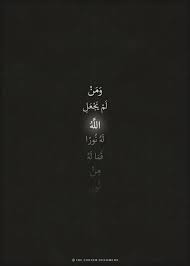 وَمَنْ
لَمْ يَجْعَلِ
اللَّهُ
لَهُ نُورًا
فَمَا لَهُ
مِنْ
نُورٍ